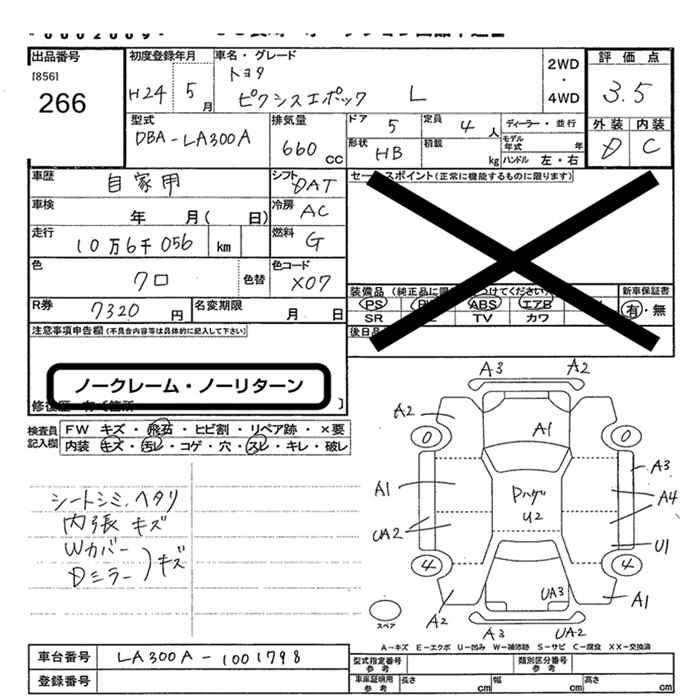 出品番号
[856]
266
初度登録年月
H24 5月
車名・グレード
トヨタ
ピクシスエポック L
2WD
・
4WD
評価点
3.5
外装 内装
D C
型式
DBA-LA300A
排気量
660 CC
ドア 5
定員 4 人
ディーラー・並行
形状 HB
積載 kg
モデル年式 年
ハンドル 左・右
車歴 自家用
シフト DAT
セールスポイント(正常に機能するものに限ります)
車検 年 月( 日)
冷房 AC
走行 10万6千056 km
燃料 G
色 クロ 色替
色コード X07
R券 7320円
名変期限 月 日
装備品
新車保証書
PS ABS エアB
有・無
SR TV カワ
注意事項申告欄(不具合内容等は具体的に記入して下さい)
後日品
ノークレーム・ノーリターン
検査員記入欄
FW キズ・飛石・ヒビ割・リペア跡・×要
内装 キズ・汚レ・コゲ・穴・スレ・キレ・破レ
シートシミ、ヘタリ
内張キズ
Wカバー
Dミラー
キズ
A3 A2
A2
0 A1 0
A1 A3
Pハゲ A4
U2
UA2 U1
4 4
UA3
A2 A1
A3 UA2
スペア
A-キズ E-エクボ U-凹み W-補修跡 S-サビ C-腐食 XX-交換済
車台番号 LA300A-1001798
登録番号
型式指定番号 参考
類別区分番号 参考
車庫証明用 参考
長さ cm 幅 cm 高さ cm